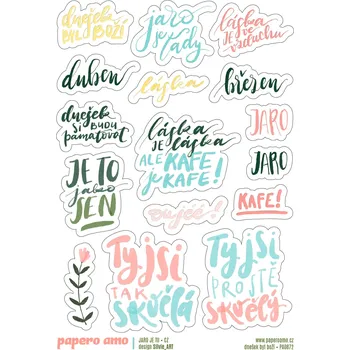 dnešek
byl boží
jaro
je tady
láska
je ve
vzduchu
duben
láska
březen
dnešek
si budu
pamatovat
láska
je láska
ALE KAFE
je KAFE!
JARO
JE TO
jako
SEN
JARO
KAFE!
Ty jsi
TAK
skvělá
Ty jsi
PROSTĚ
skvělý
papero amo
JARO JE TU - CZ
design Silvie_ART
www.paperoamo.cz